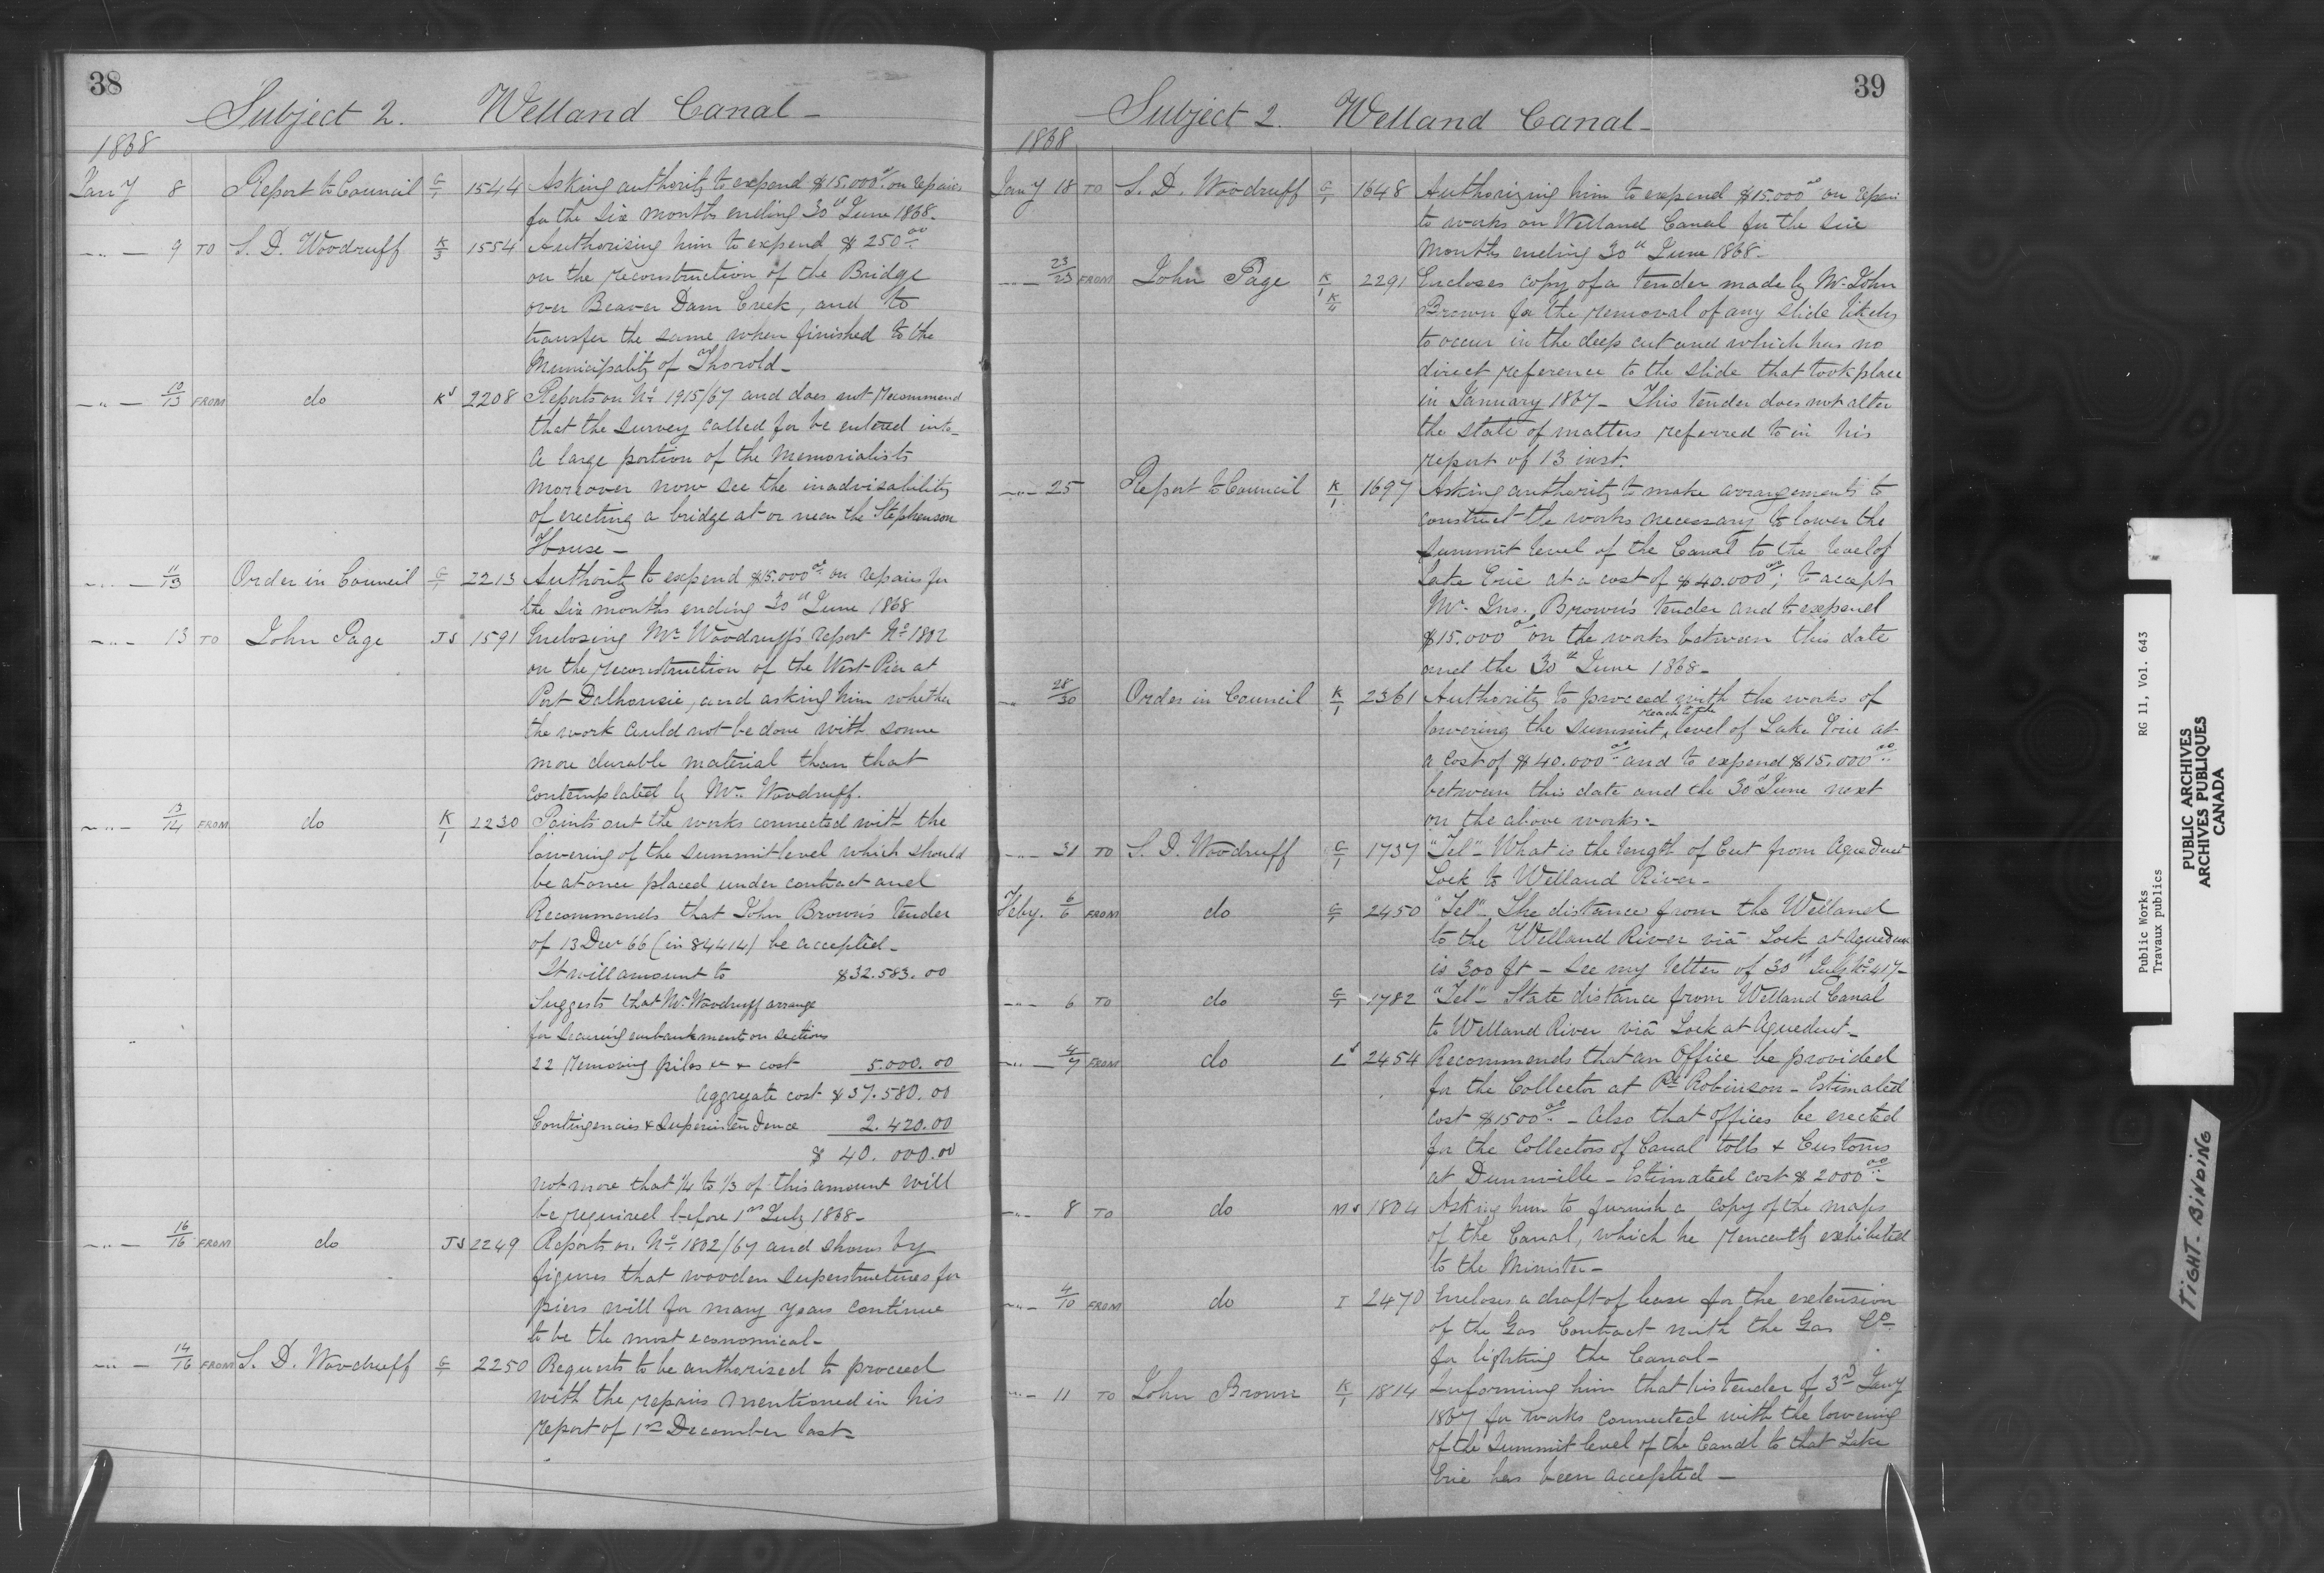 38
Subject 2. Welland Canal -
1868
Jany 8 Report to Council G/1 1544 Asking authority to expend $15.000.00 on repairs
for the six months ending 30th June 1868.
-"- 9 TO S. D. Woodruff K/3 1554 Authorising him to expend $250.00
on the reconstruction of the Bridge
over Beaver Dam Creek, and to
transfer the same when finished to the
Municipality of Thorold -
-"- 10/13 FROM do K 2208 Reports on No 1915/67 and does not recommend
that the survey called for be entered into -
A large portion of the Memorialists
moreover now see the inadvisability
of erecting a bridge at or near the Stephenson
House -
-"- 11/13 Order in Council G/1 2213 Authority to expend $15.000.00 on repairs for
the six months ending 30th June 1868
-"- 13 TO John Page JS 1591 Enclosing Mr Woodruff's report No 1802
on the reconstruction of the West Pier at
Port Dalhousie, and asking him whether
the work could not be done with some
more durable material than that
contemplated by Mr. Woodruff.
-"- 13/14 FROM do K/1 2230 Points out the works connected with the
lowering of the summit level which should
be at once placed under contract and
Recommends that John Brown's tender
of 13 Decr 66 (in 84414) be accepted -
It will amount to $32.583.00
Suggests that Mr Woodruff arrange
for securing embankment on sections
22 removing piles & cost 5.000.00
Aggregate cost $37.580.00
Contingencies & Superintendence 2.420.00
$ 40.000.00
not more that 1/4 to 1/3 of this amount will
be required before 1st July 1868 -
-"- 16/16 FROM do JS 2249 Reports on No 1802/67 and shows by
figures that wooden superstructures for
piers will for many years continue
to be the most economical -
-"- 14/16 FROM S. D. Woodruff G/1 2250 Requests to be authorised to proceed
with the repairs mentioned in his
report of 1st December last -
39
Subject 2. Welland Canal -
1868
Jany 18 TO S. D. Woodruff G/1 1648 Authorizing him to expend $15.000.00 on repair
to works on Welland Canal for the six
months ending 30th June 1868 -
-"- 23/23 FROM John Page K/1 K/4 2291 Encloses copy of a tender made by Mr John
Brown for the removal of any slide likely
to occur in the deep cut and which has no
direct reference to the slide that took place
in January 1867 - This tender does not alter
the state of matters referred to in his
report of 13 inst.
-"- 25 Report to Council K/1 1697 Asking authority to make arrangements to
construct the works necessary to lower the
summit level of the Canal to the level of
Lake Erie at a cost of $40.000.00; to accept
Mr. Jno. Brown's tender and to expend
$15.000.00 on the works between this date
and the 30th June 1868 -
-"- 28/30 Order in Council K/1 2361 Authority to proceed with the works of
lowering the summit reach to the level of Lake Erie at
a cost of $40.000.00 and to expend $15.000.00
between this date and the 30th June next
on the above works -
-"- 31 TO S. D. Woodruff G/1 1737 "Tel" - What is the length of Cut from Aqueduct
Lock to Welland River -
Feby. 6/6 FROM do G/1 2450 "Tel" - The distance from the Welland
to the Welland River via Lock at Aqueduct
is 300 ft - see my letter of 30th July No 417 -
-"- 6 TO do G/1 1782 "Tel" - State distance from Welland Canal
to Welland River via Lock at Aqueduct -
-"- 4/7 FROM do L 2454 Recommends that an Office be provided
for the Collector at Pt Robinson - Estimated
cost $1500.00 - Also that offices be erected
for the Collectors of Canal tolls & Customs
at Dunnville - Estimated cost $2000.00 -
-"- 8 TO do MS 1804 Asking him to furnish a copy of the maps
of the Canal, which he recently exhibited
to the Minister -
-"- 4/10 FROM do I 2470 Encloses a draft of lease for the extension
of the Gas Contract with the Gas Co
for lighting the Canal -
-"- 11 TO John Brown K/1 1814 Informing him that his tender of 3rd Jany
1867 for works connected with the lowering
of the Summit level of the Canal to that Lake
Erie has been accepted -
Public Works RG 11, Vol. 643
Travaux publics
PUBLIC ARCHIVES
ARCHIVES PUBLIQUES
CANADA
TIGHT-BINDING